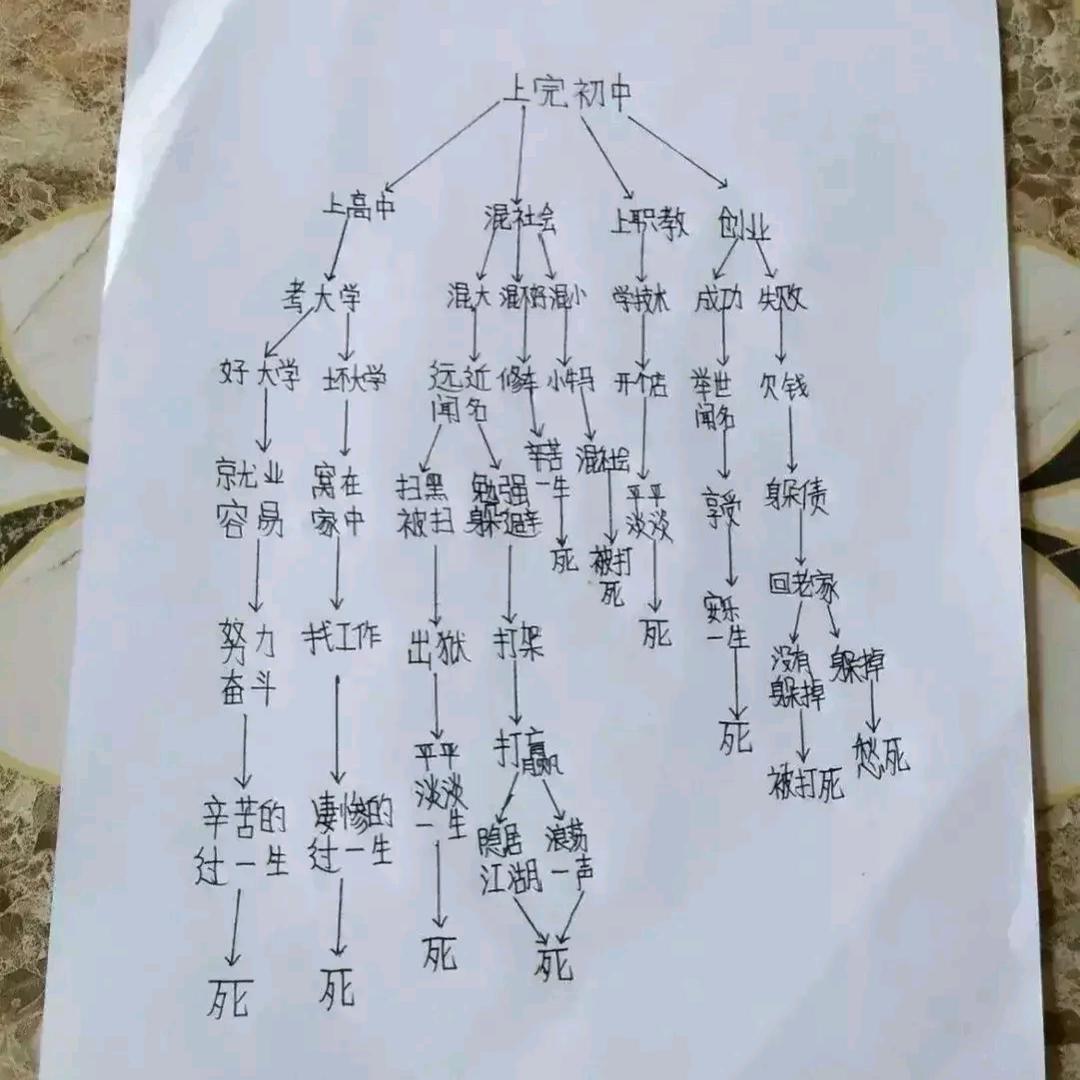 上完初中
上高中 混社会 上职教 创业
考大学 混大 混不好 混小 学技术 成功 失败
好大学 坏大学 远近 修车 小牛马 开个店 举世 欠钱
闻名 闻名
辛苦 混社会
一生
就业 窝在 扫黑 勉强 平平 享受 躲债
容易 家中 被扫 躲避 淡淡
死 被打
死
回老家
努力 找工作 出狱 打架 死 安乐
奋斗 一生
没有 躲掉
躲掉
平平 打赢 死 被打死 愁死
淡淡
一生
辛苦的 凄惨的 隐居 浪荡
过一生 过一生 江湖 一声
死 死 死 死